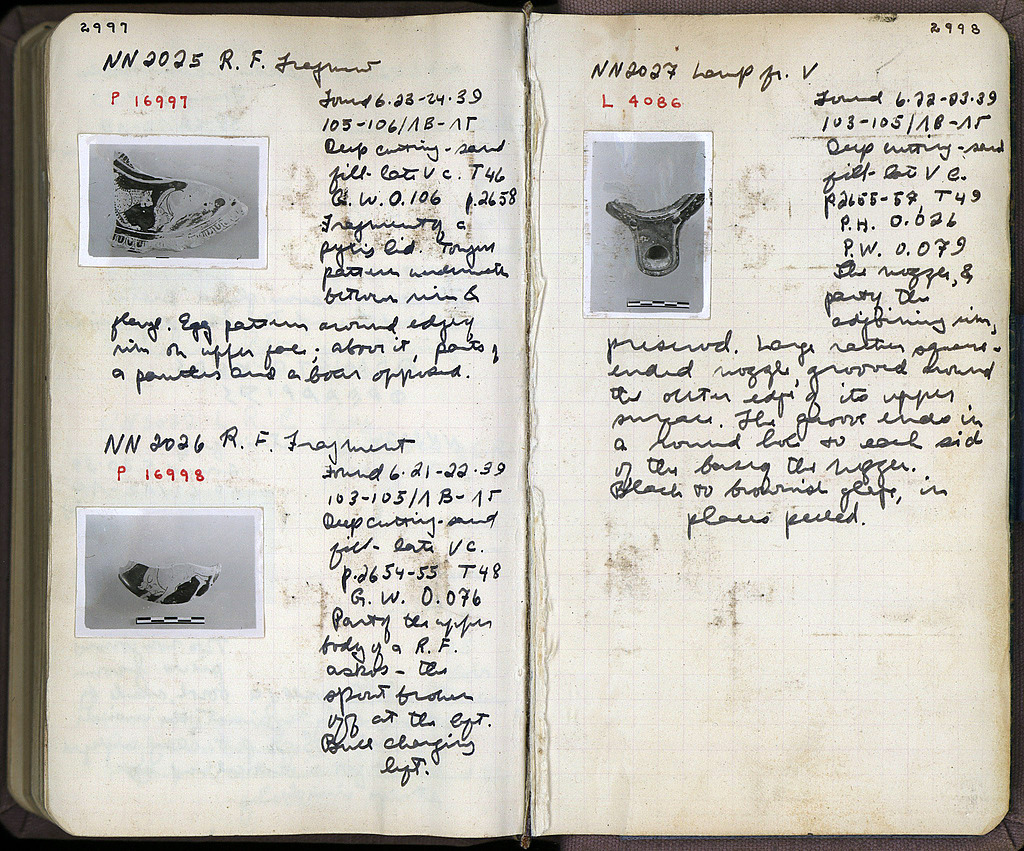 2997
NN 2025 R. F. Fragment
P 16997
Found 6.23-24.39
103-106/ΛB-ΛΓ
Deep cutting-sand
fill-late V c. T46
G. W. 0.106 p.2658
Fragment of a
pyxis lid. Tongue
pattern underneath
between rim &
flange. Egg pattern around edge of
rim on upper face; above it, parts of
a panther and a boar opposed.
NN 2026 R. F. Fragment
P 16998
Found 6.21-22.39
103-105/ΛB-ΛΓ
Deep cutting-sand
fill-late V c.
p.2654-55 T48
G. W. 0.076
Part of the upper
body of a R. F.
askos - the
spout broken
off at the left.
Bull charging
left.
2998
NN2027 Lamp fr. V
L 4086
Found 6.22-23.39
103-105/ΛB-ΛΓ
Deep cutting-sand
fill-late V c.
p2655-57, T49
P.H. 0.026
P.W. 0.079
The nozzle, &
part of the
adjoining rim,
preserved. Large rather square-
ended nozzle, grooved around
the outer edge of its upper
surface. The groove ends in
a round hole to each side
of the base of the nozzle.
Black to brownish glaze, in
places peeled.